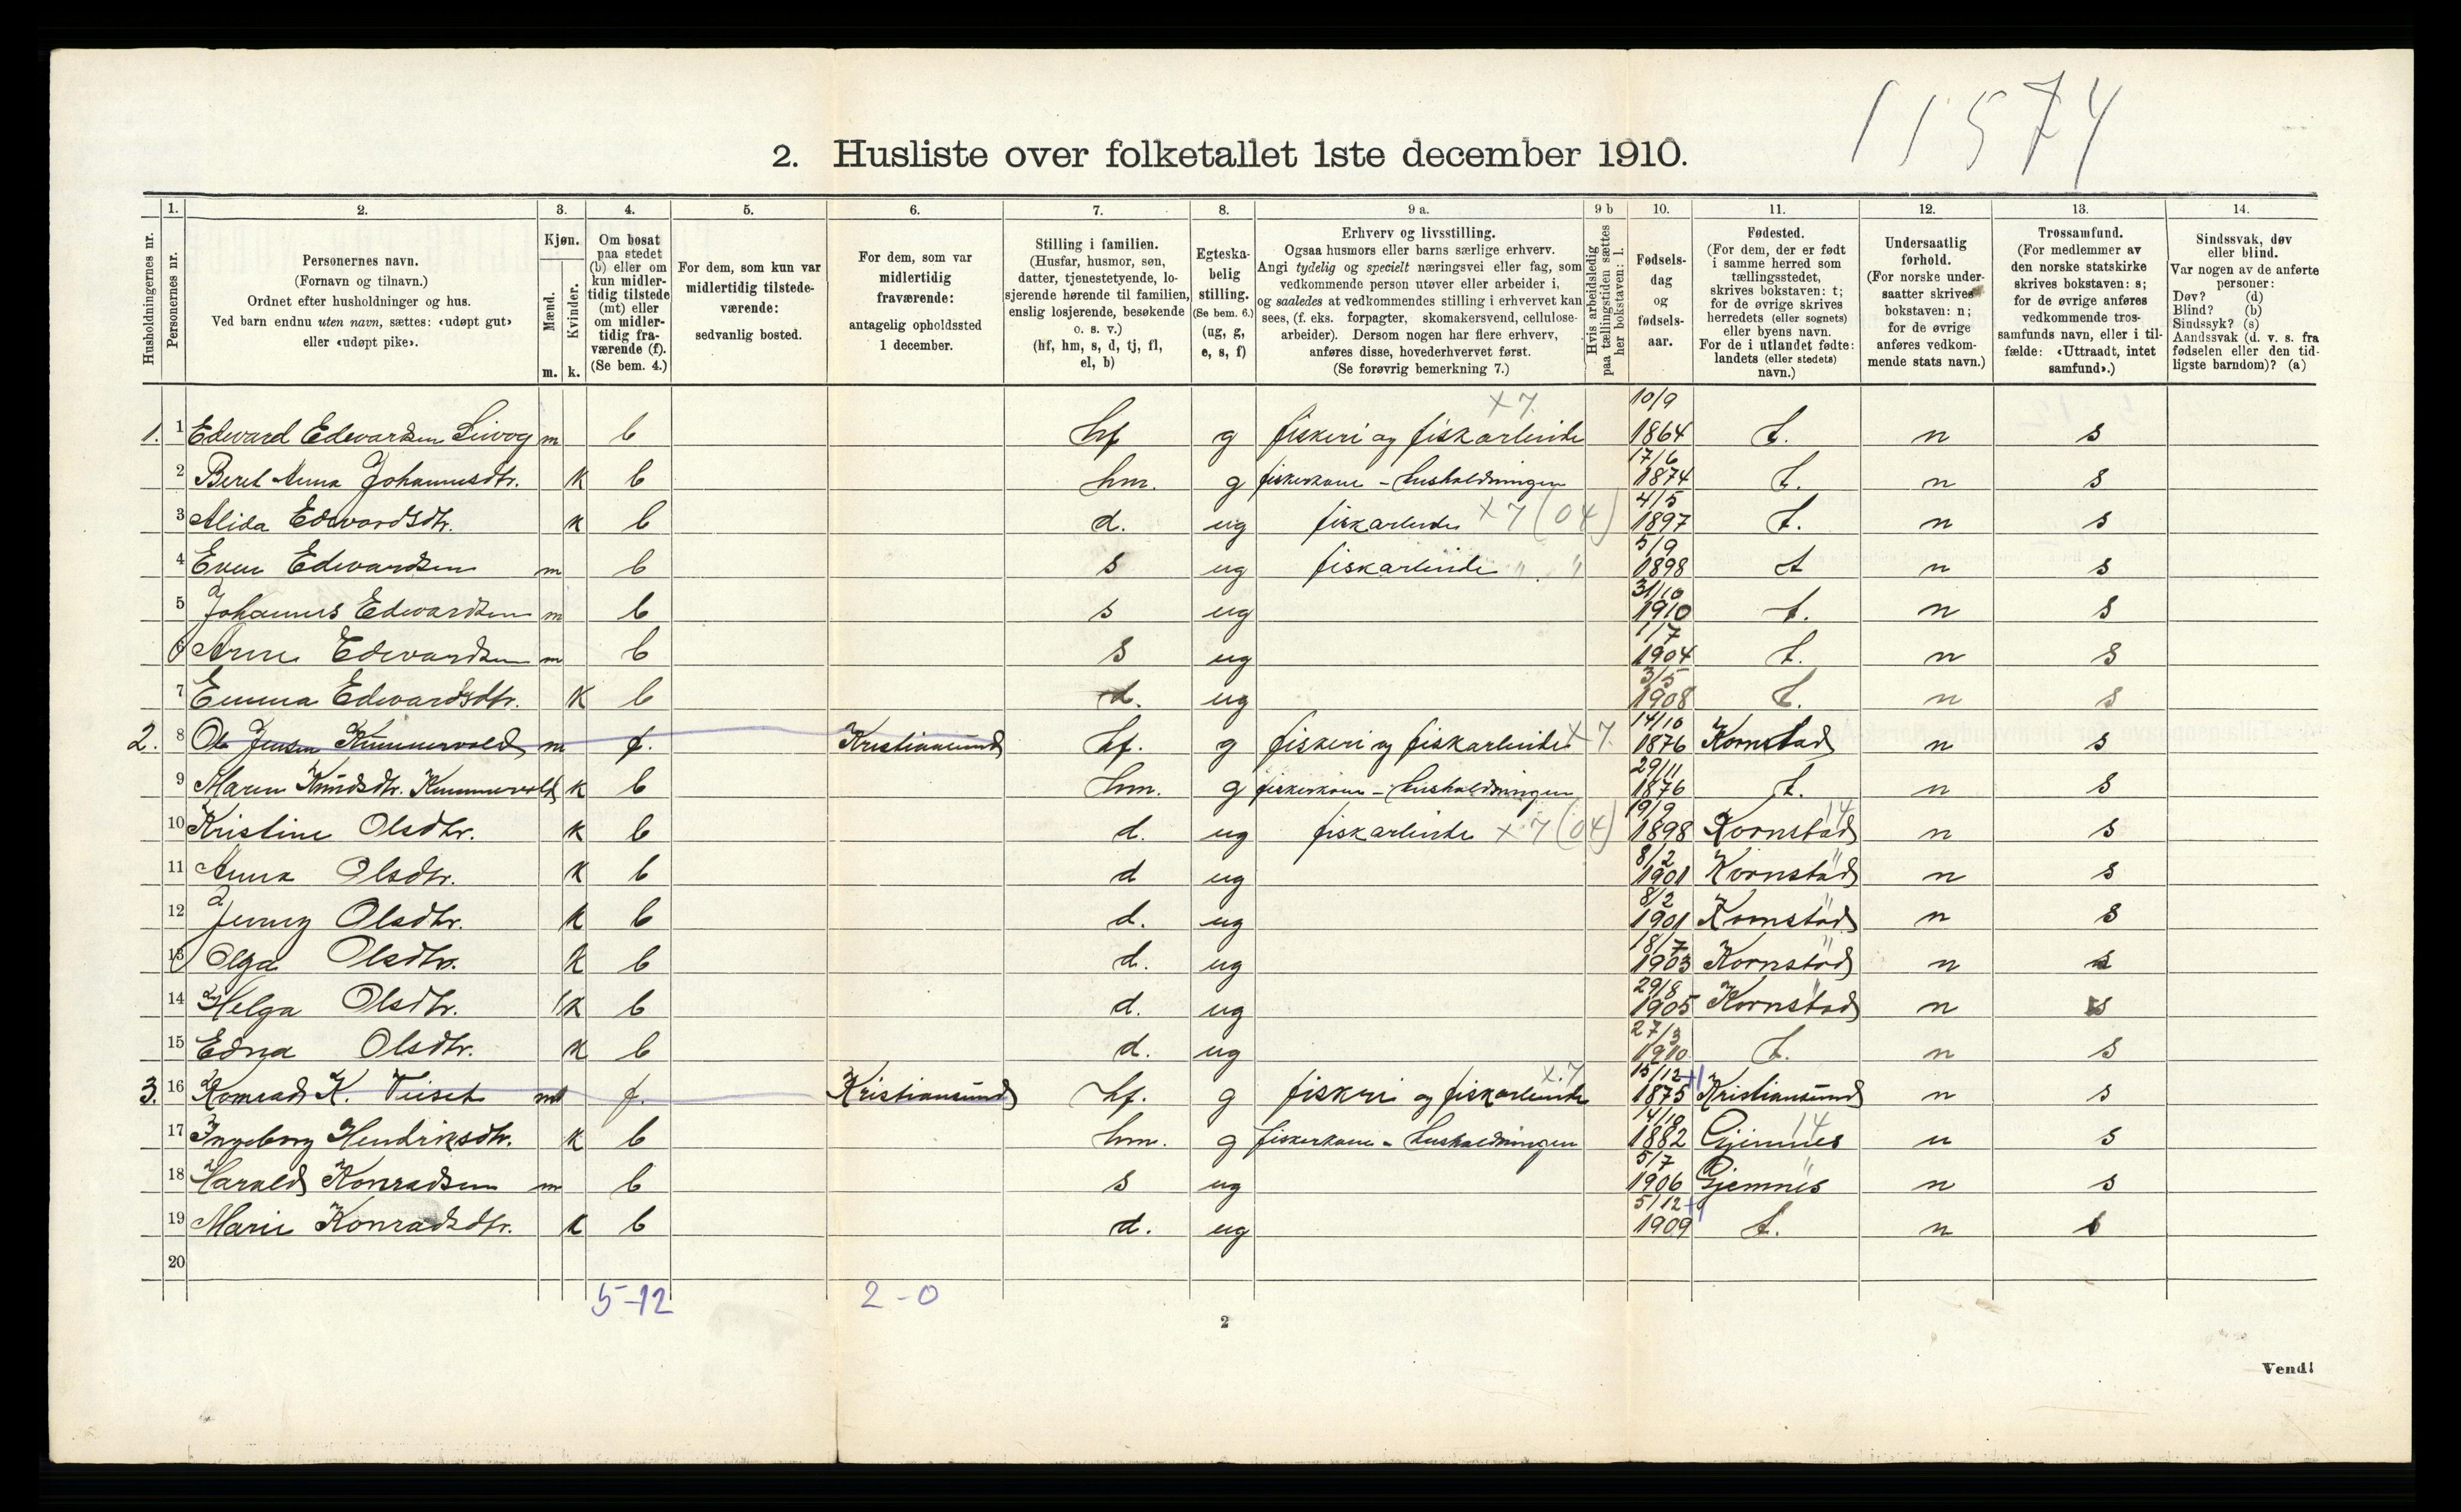 11574
2. Husliste over folketallet 1ste december 1910.
Husholdningernes nr.
1. 2. 3. 4. 5. 6. 7. 8. 9 a. 9 b 10. 11. 12. 13. 14.
Personernes nr.
Personernes navn.
(Fornavn og tilnavn.)
Ordnet efter husholdninger og hus.
Ved barn endnu uten navn, sættes: «udøpt gut»
eller «udøpt pike».
Kjøn.
Mænd.
Kvinder.
m. k.
Om bosat
paa stedet
(b) eller om
kun midler-
tidig tilstede
(mt) eller
om midler-
tidig fra-
værende (f).
(Se bem. 4.)
For dem, som kun var
midlertidig tilstede-
værende:
sedvanlig bosted.
For dem, som var
midlertidig
fraværende:
antagelig opholdssted
1 december.
Stilling i familien.
(Husfar, husmor, søn,
datter, tjenestetyende, lo-
sjerende hørende til familien,
enslig losjerende, besøkende
o. s. v.)
(hf, hm, s, d, tj, fl,
el, b)
Egteska-
belig
stilling.
(Se bem. 6.)
(ug, g,
e, s, f)
Erhverv og livsstilling.
Ogsaa husmors eller barns særlige erhverv.
Angi tydelig og specielt næringsvei eller fag, som
vedkommende person utøver eller arbeider i,
og saaledes at vedkommendes stilling i erhvervet kan
sees, (f. eks. forpagter, skomakersvend, cellulose-
arbeider). Dersom nogen har flere erhverv,
anføres disse, hovederhvervet først.
(Se forøvrig bemerkning 7.)
Hvis arbeidsledig
paa tællingstiden sættes
her bokstaven: l.
Fødsels-
dag
og
fødsels-
aar.
Fødested.
(For dem, der er født
i samme herred som
tællingsstedet,
skrives bokstaven: t;
for de øvrige skrives
herredets (eller sognets)
eller byens navn.
For de i utlandet fødte:
landets (eller stedets)
navn.)
Undersaatlig
forhold.
(For norske under-
saatter skrives
bokstaven: n;
for de øvrige
anføres vedkom-
mende stats navn.)
Trossamfund.
(For medlemmer av
den norske statskirke
skrives bokstaven: s;
for de øvrige anføres
vedkommende tros-
samfunds navn, eller i til-
fælde: «Uttraadt, intet
samfund».)
Sindssvak, døv
eller blind.
Var nogen av de anførte
personer:
Døv? (d)
Blind? (b)
Sindssyk? (s)
Aandssvak (d. v. s. fra
fødselen eller den tid-
ligste barndom)? (a)
1. 1 Edvard Edvardsen m b hf g fiskeri og fiskarbeide x 7. 10/9 1864 t. n s
2 Beret Anna Johannesdtr. k b hm. g fiskerkone - husholdningen 17/6 1874 t. n s
3 Alida Edvardsdtr. k b d. ug fiskarbeide x 7 (04) 4/5 1897 t. n s
4 Even Edvardsen m b s ug fiskarbeide " " 5/9 1898 t n s
5 Johannes Edvardsen m b s ug 31/10 1910 t. n s
6 Arne Edvardsen m b s ug 1/7 1904 t. n s
7 Emma Edvardsdtr. k b d. ug 3/5 1908 t. n s
2. 8 Ole Jensen Kummervold m f. Kristiansund hf. g fiskeri og fiskarbeide x 7. 14/10 1876 Kornstad n s
9 Maren Knudsdtr. Kummervold k b hm. g fiskerkone - husholdningen 29/11 1876 t. n s
10 Kristine Olsdtr. k b d. ug fiskarbeide x 7 (04) 19/9 1898 Kornstad 14 n s
11 Anna Olsdtr. k b d ug 8/2 1901 Kornstad " n s
12 Jenny Olsdtr. k b d. ug 8/2 1901 Kornstad " n s
13 Olga Olsdtr. k b d. ug 18/7 1903 Kornstad " n s
14 Helga Olsdtr. k b d. ug 29/8 1905 Kornstad " n s
15 Edna Olsdtr. k b d. ug 27/3 1910 t. n s
3. 16 Konrad K. m f. Kristiansund hf. g fiskeri og fiskarbeide x 7 15/12 1875 Kristiansund n s
17 Ingeborg Hendriksdtr. k b hm. g fiskerkone - husholdningen 14/10 1882 Gjemnes 14 n s
18 Harald Konradsen m b s ug 5/7 1906 Gjemnes " n s
19 Marie Konradsdtr. k b d. ug 5/12 1909 t. n s
20
5-12 2-0
2
Vend!